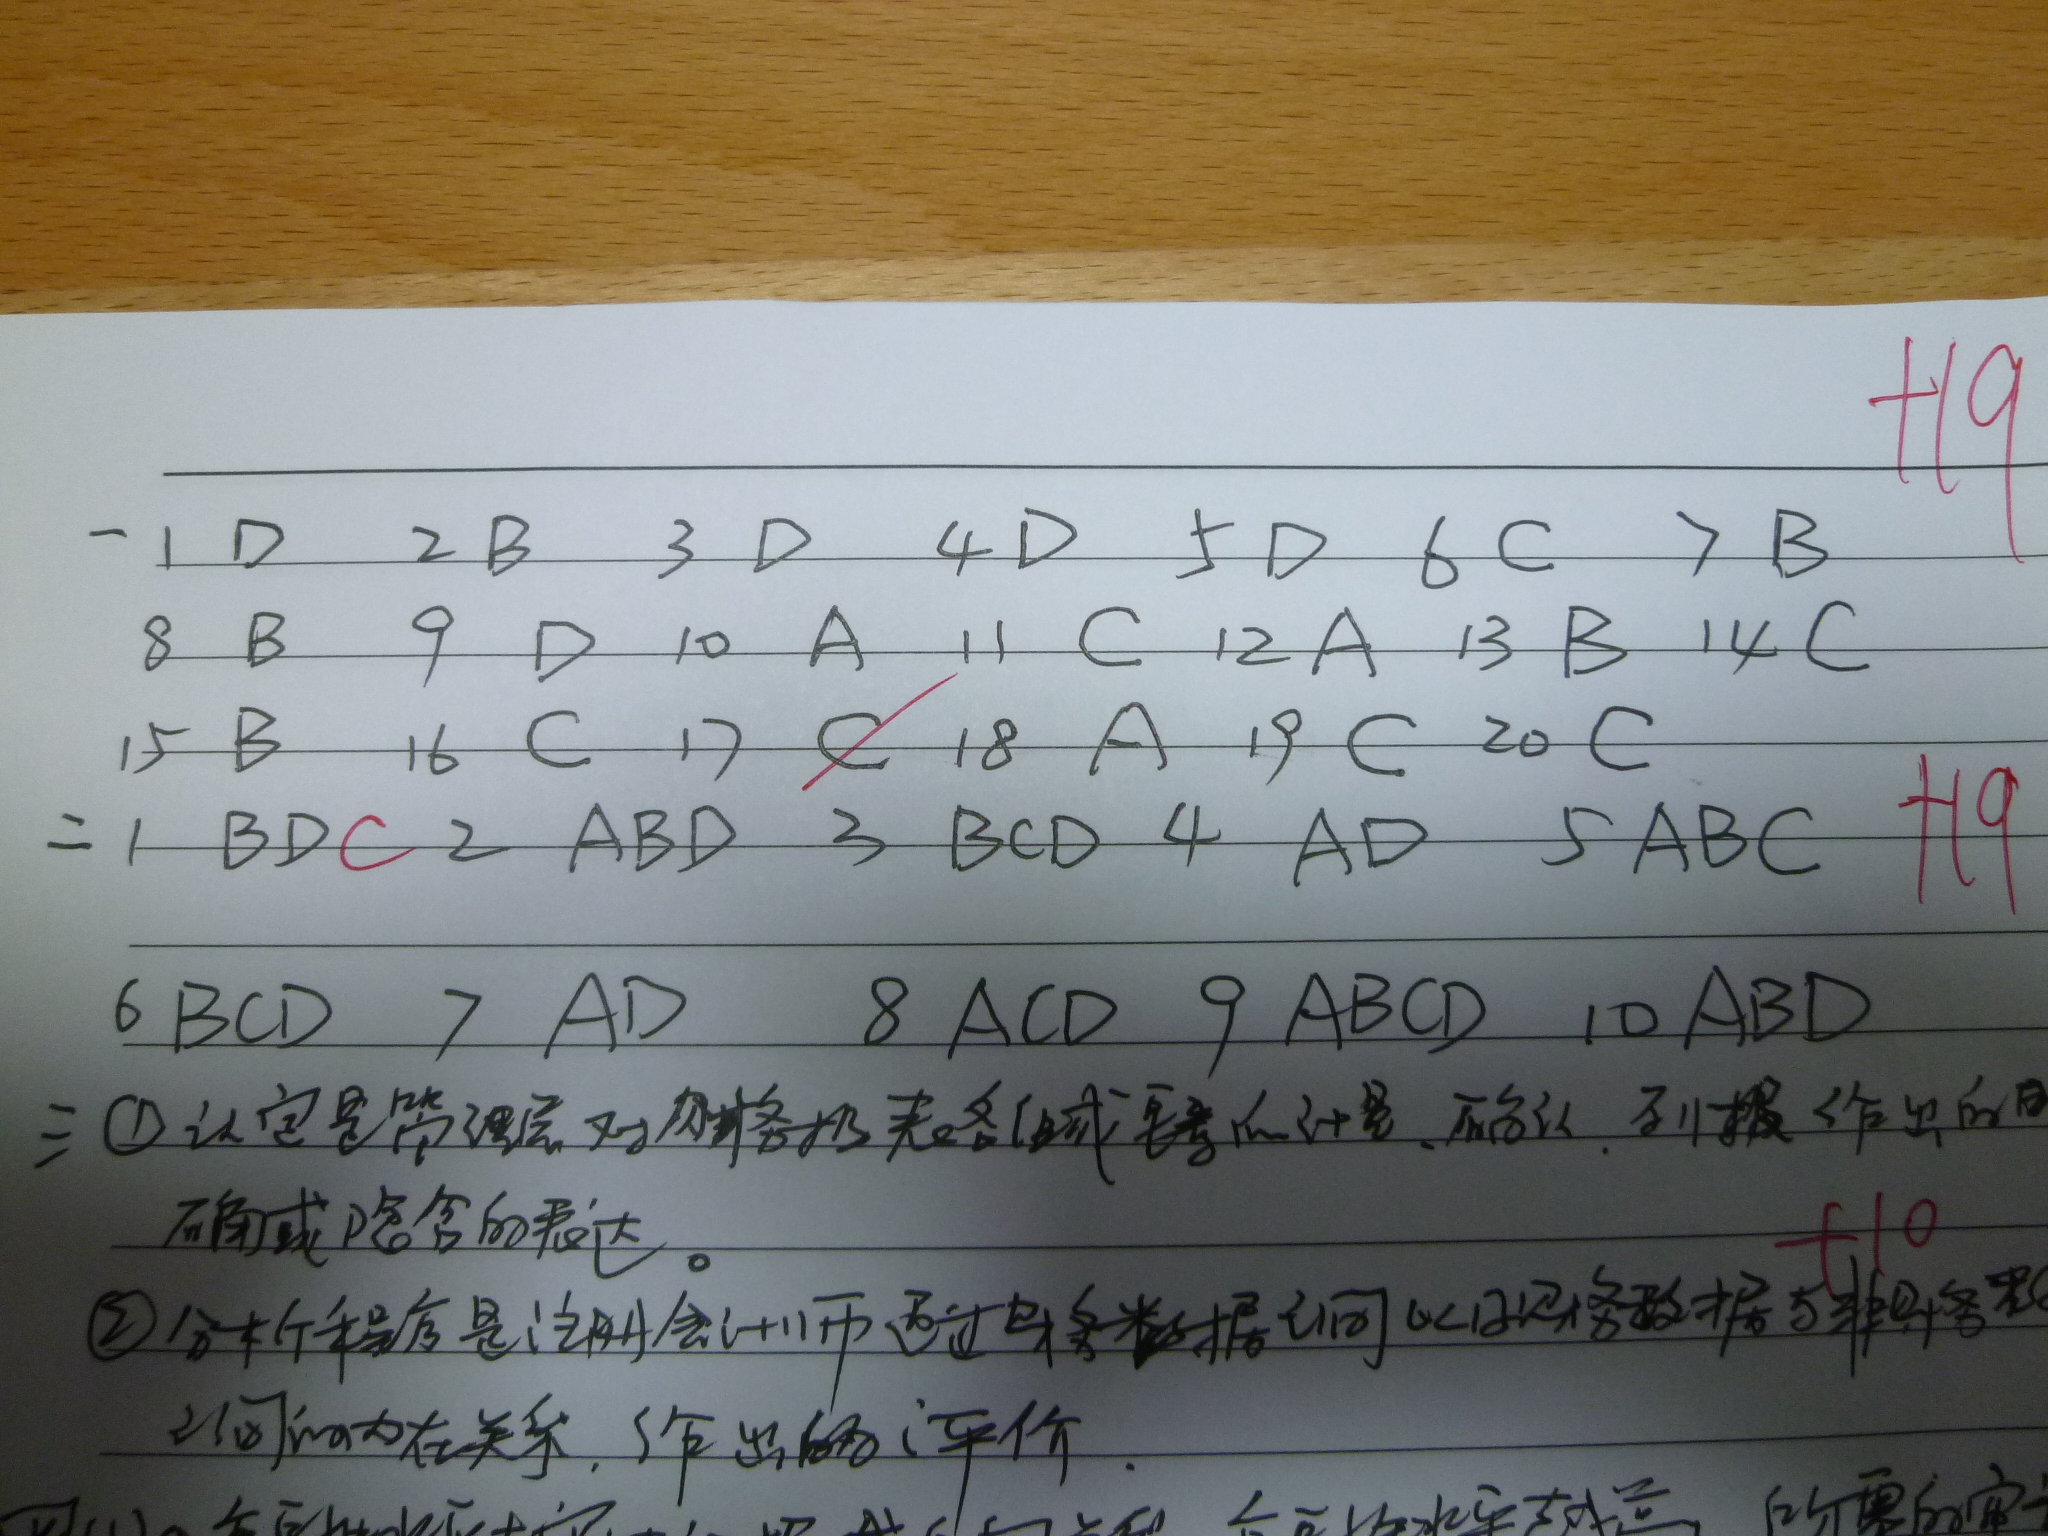 +19
一 1 D 2 B 3 D 4 D 5 D 6 C 7 B
8 B 9 D 10 A 11 C 12 A 13 B 14 C
15 B 16 C 17 C 18 A 19 C 20 C
二 1 BDC 2 ABD 3 BCD 4 AD 5 ABC +19
6 BCD 7 AD 8 ACD 9 ABCD 10 ABD
三 ① 认定是管理层对财务报表各组成要素的计量、确认、列报作出的明
确或隐含的表达。
+10
② 分析程序是注册会计师透过财务数据之间以及财务数据与非财务数
之间的内在关系,作出的评价.